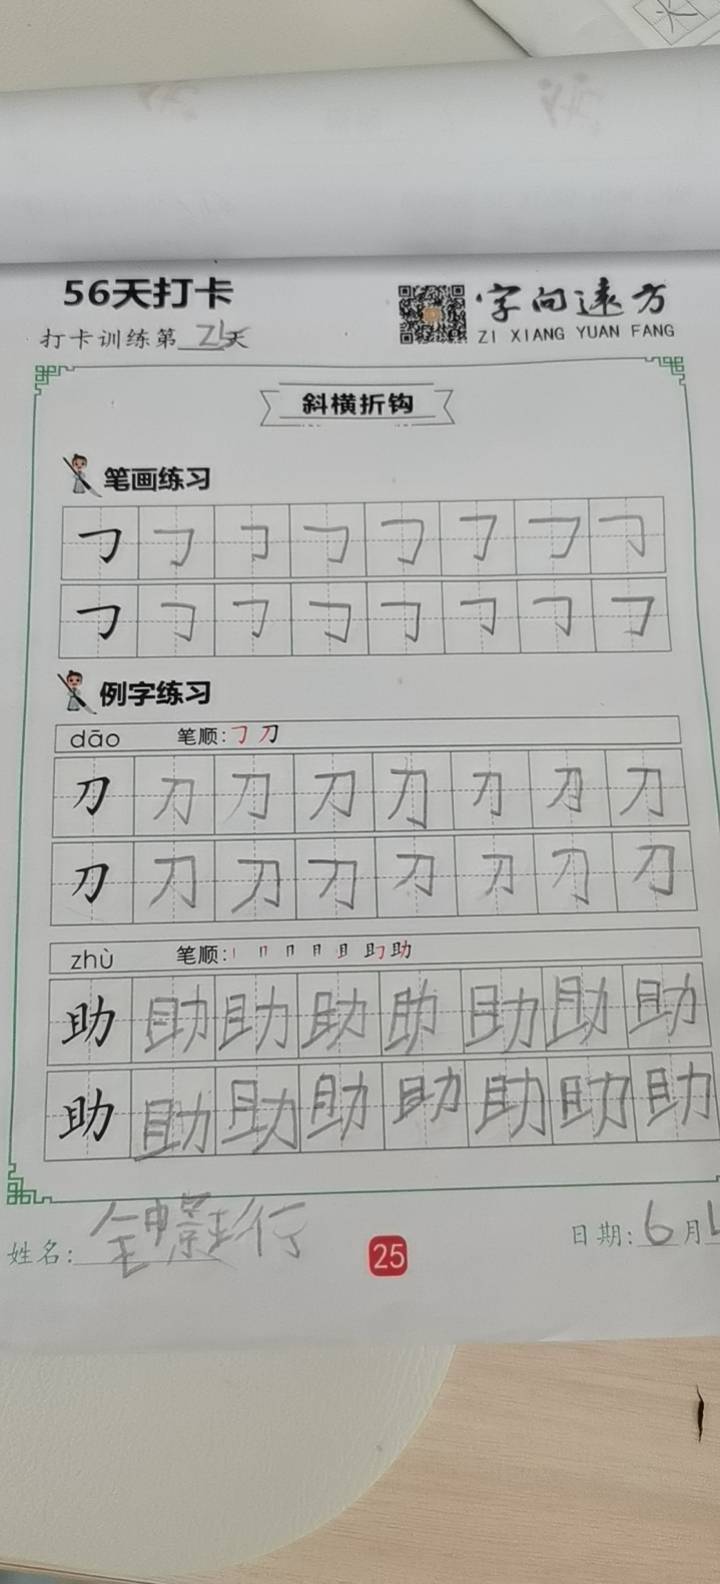 56天打卡
字向远方
打卡训练第21天
ZI XIANG YUAN FANG
斜横折钩
笔画练习
例字练习
dāo 笔顺: 刀
刀 刀 刀 刀 刀 刀 刀 刀
刀 刀 刀 刀 刀 刀 刀 刀
zhù 笔顺: 丨 冂 冂 月 且 助
助 助 助 助 助 助 助 助
助 助 助 助 助 助 助 助
姓名:
25
日期:6月